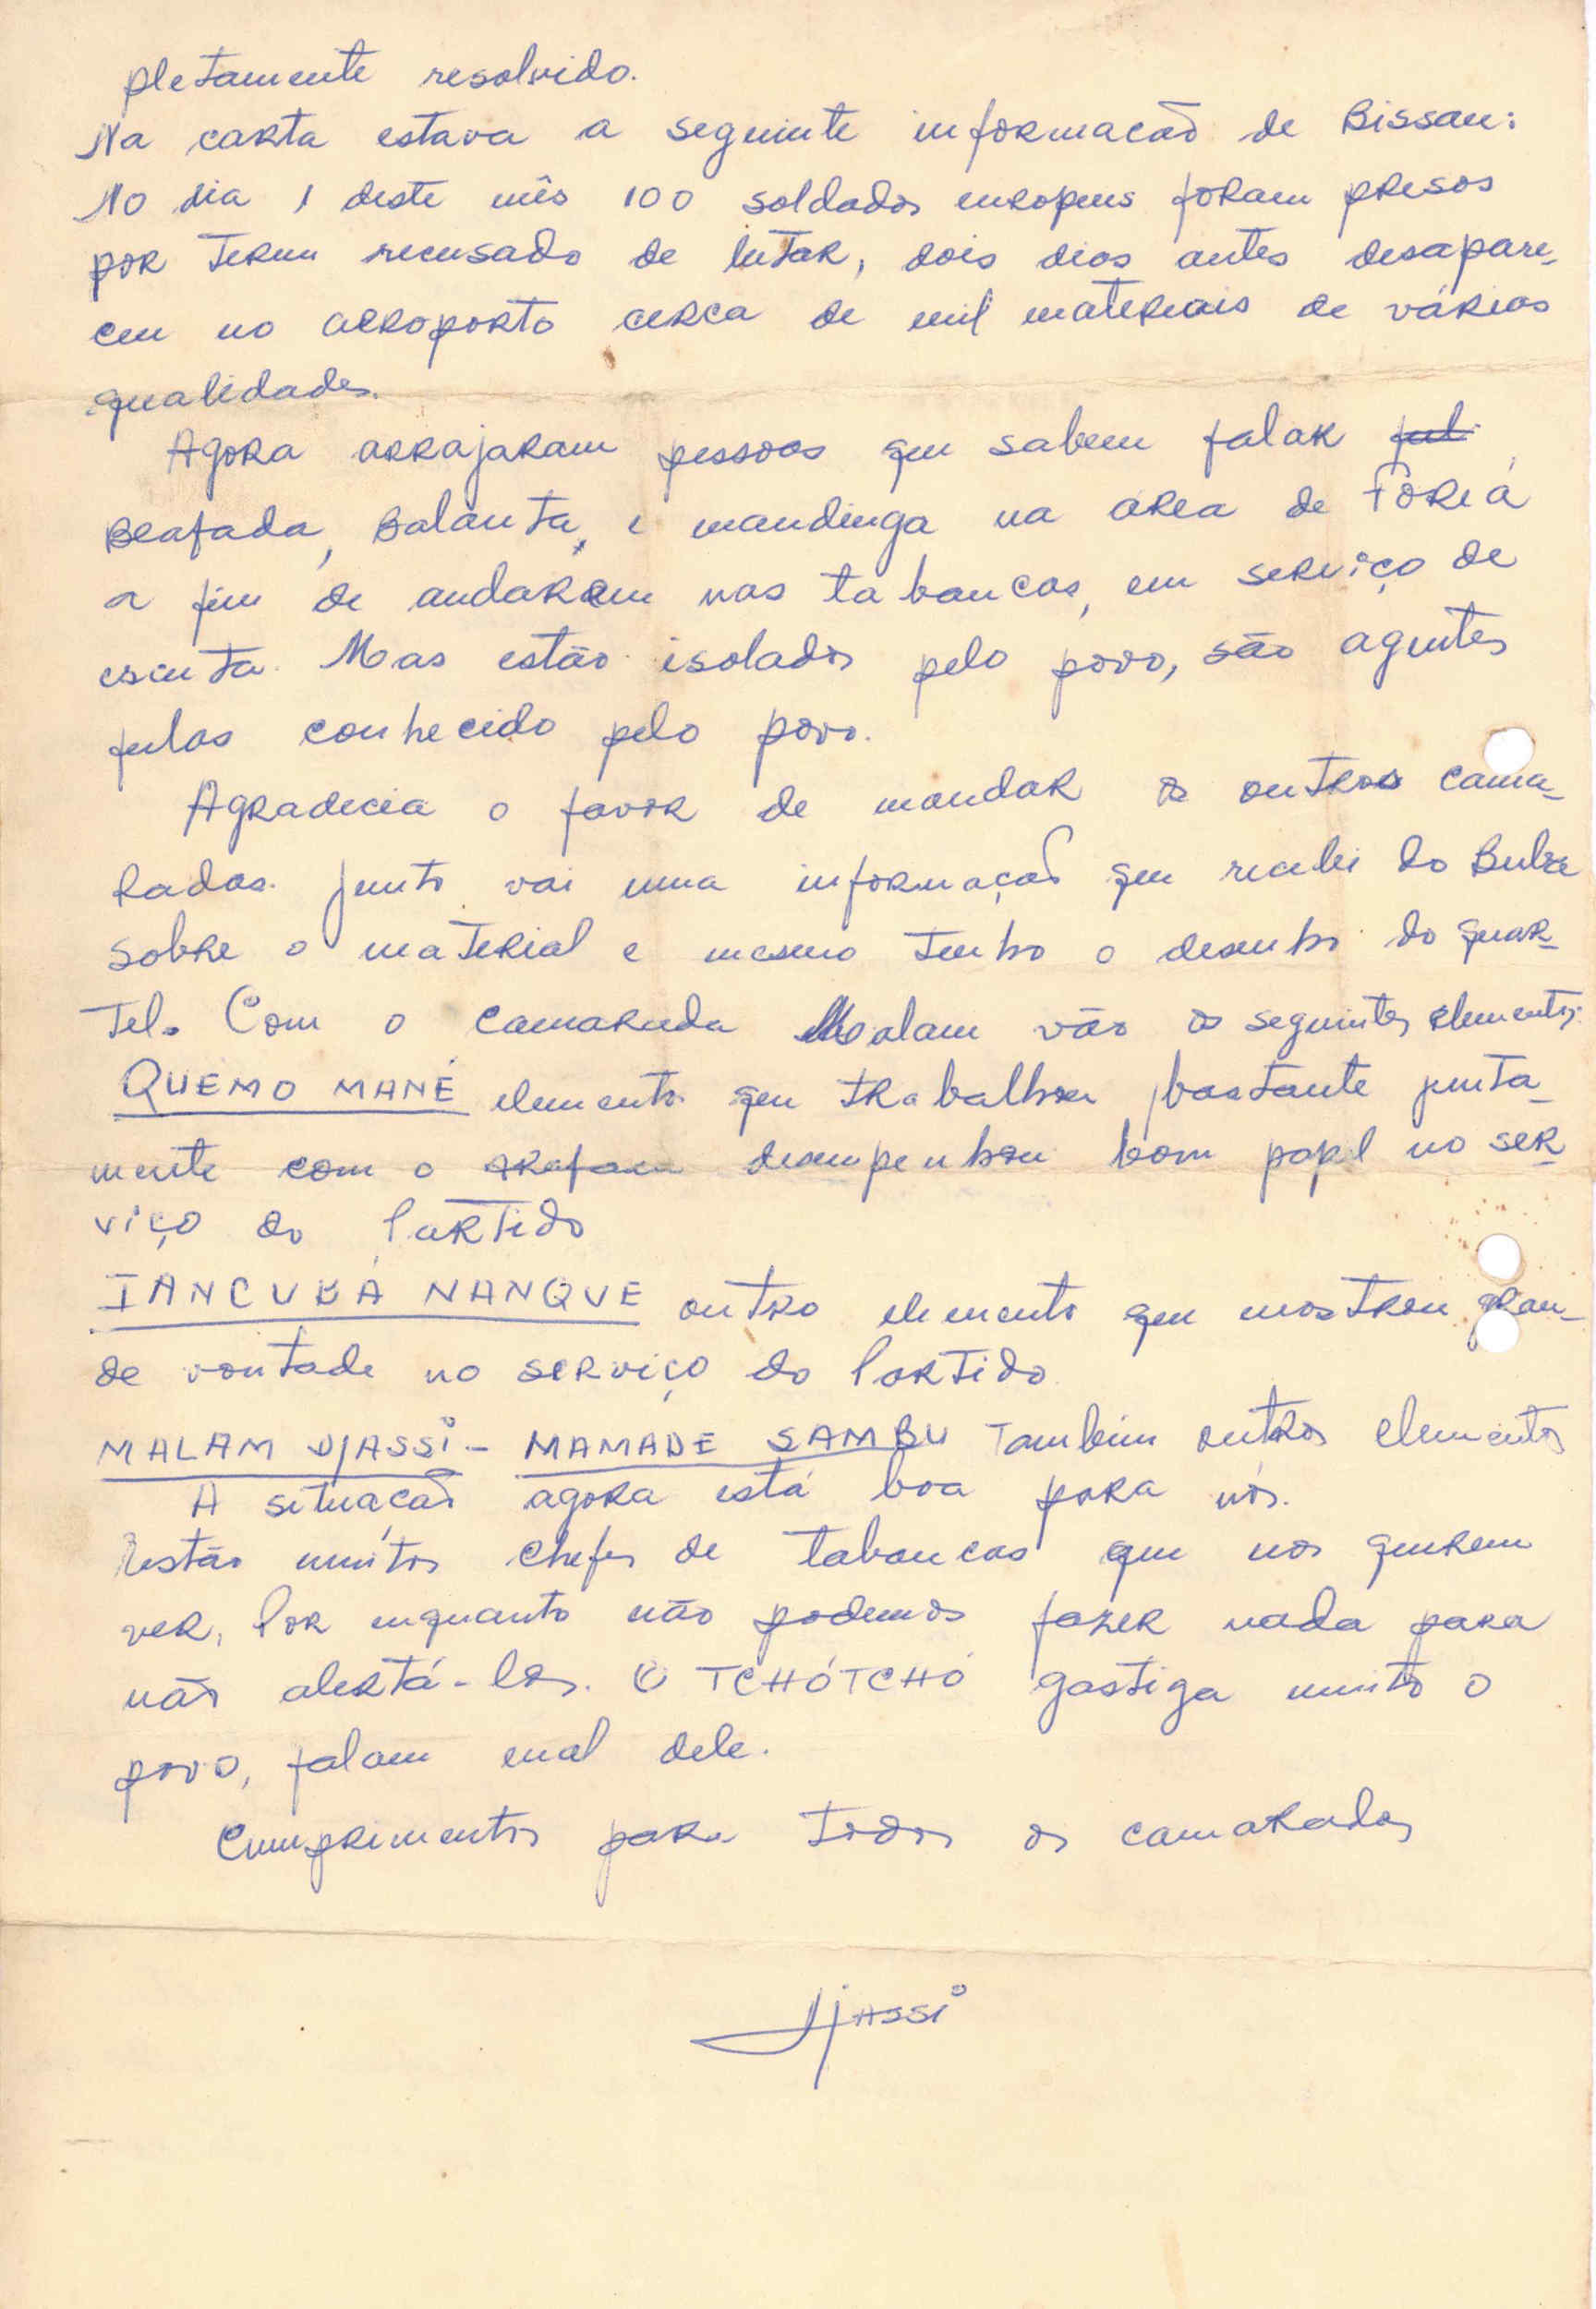 pletamente resolvido.
Na carta estava a seguinte informação de Bissau:
No dia 1 deste mês 100 soldados europeus foram presos
por terem recusado de lutar, dois dias antes desapare-
ceu no aeroporto cerca de mil materiais de várias
qualidades.
Agora arrajaram pessoas que sabem falar ful
Beafada, Balanta, e mandinga na area de Foriá
a fim de andarem nas tabancas, em serviço de
escuta. Mas estão isolados pelo povo, são agentes
fulas conhecido pelo povo.
Agradecia o favor de mandar os outros cama-
radas. Junto vai uma informação que recebi do Buba
sobre o material e mesmo tenho o desenho do quar-
tel. Com o camarada Malam vão os seguintes elementos:
QUEMO MANÉ elemento que trabalhou bastante junta-
mente com o Arafam desempenhou bom papel no ser-
viço do Partido
IANCUBÁ NANQUE outro elemento que mostrou gran-
de vontade no serviço do Partido
MALAM DJASSI - MAMADE SAMBU também outros elementos
A situação agora está boa para nós.
Estão muitos chefes de tabancas que nos querem
ver, Por enquanto não podemos fazer nada para
não alertá-los. O TCHÓTCHÓ gastiga muito o
povo, falam mal dele.
Cumprimentos para todos os camaradas
Djassi